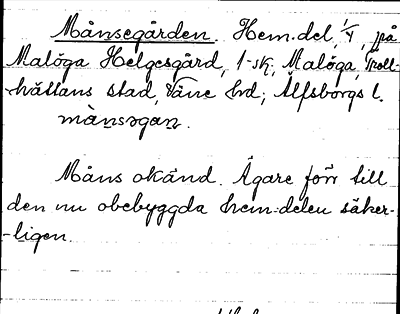 Månsegården. Hem.del, 1/4, på
Malöga Helgesgård, 1-sk, Malöga, Troll-
hättans stad, Väne hd; Älfsborgs l.
mànsəgaṇ.
Måns okänd. Ägare förr till
den nu obebyggda hem.delen säker-
-ligen.